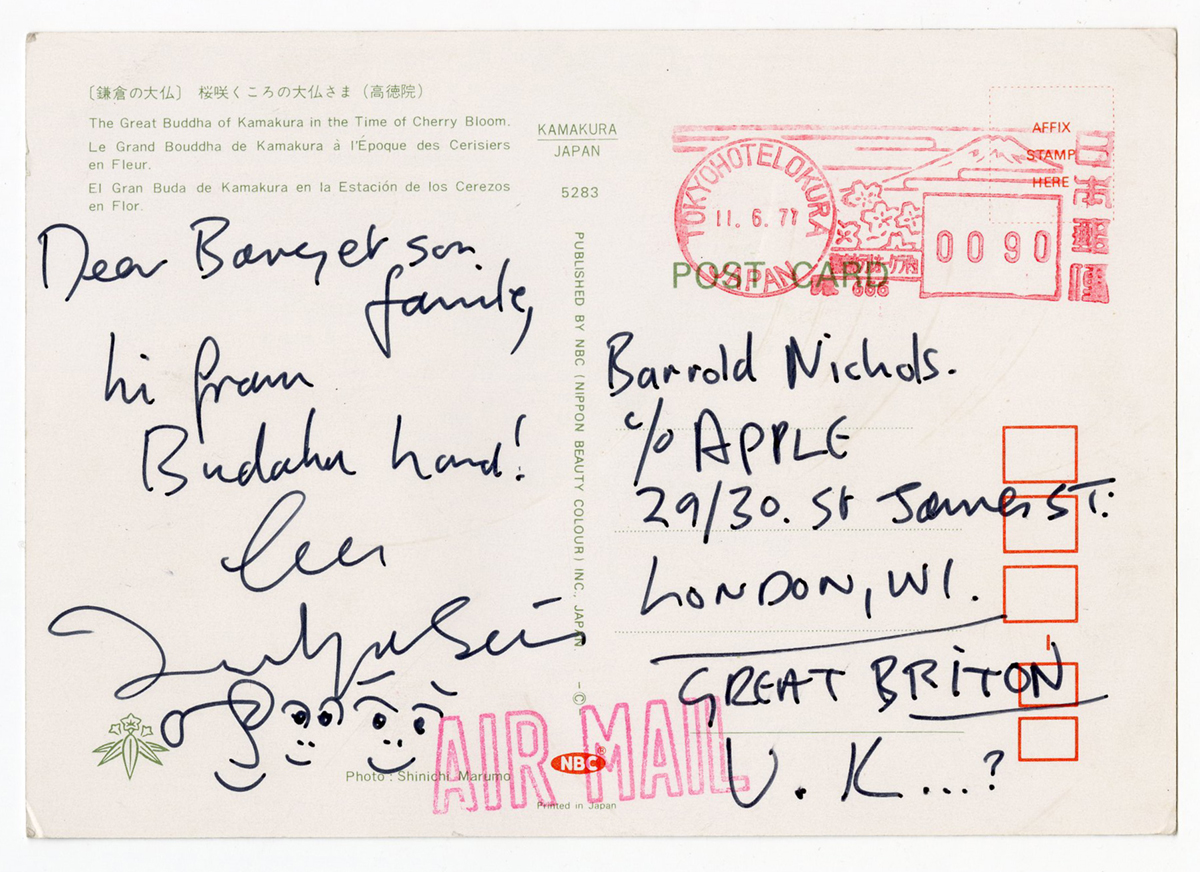 〔鎌倉の大仏〕 桜咲くころの大仏さま (高徳院)
The Great Buddha of Kamakura in the Time of Cherry Bloom.
Le Grand Bouddha de Kamakura à l'Époque des Cerisiers
en Fleur.
El Gran Buda de Kamakura en la Estación de los Cerezos
en Flor.
KAMAKURA
JAPAN
5283
AFFIX
STAMP
HERE
日本郵便
TOKYOHOTELOKURA
11. 6. 77
JAPAN
0090
666
POST CARD
Dear
son
family,
hi from
hand!
PUBLISHED BY NBC (NIPPON BEAUTY COLOUR) INC., JAPAN. –©
Barrold Nichols.
c/o APPLE
29/30. St James ST.
LONDON, W1.
GREAT BRITON
U. K ...?
AIR MAIL
NBC
Photo : Shinichi Marumo
Printed in Japan